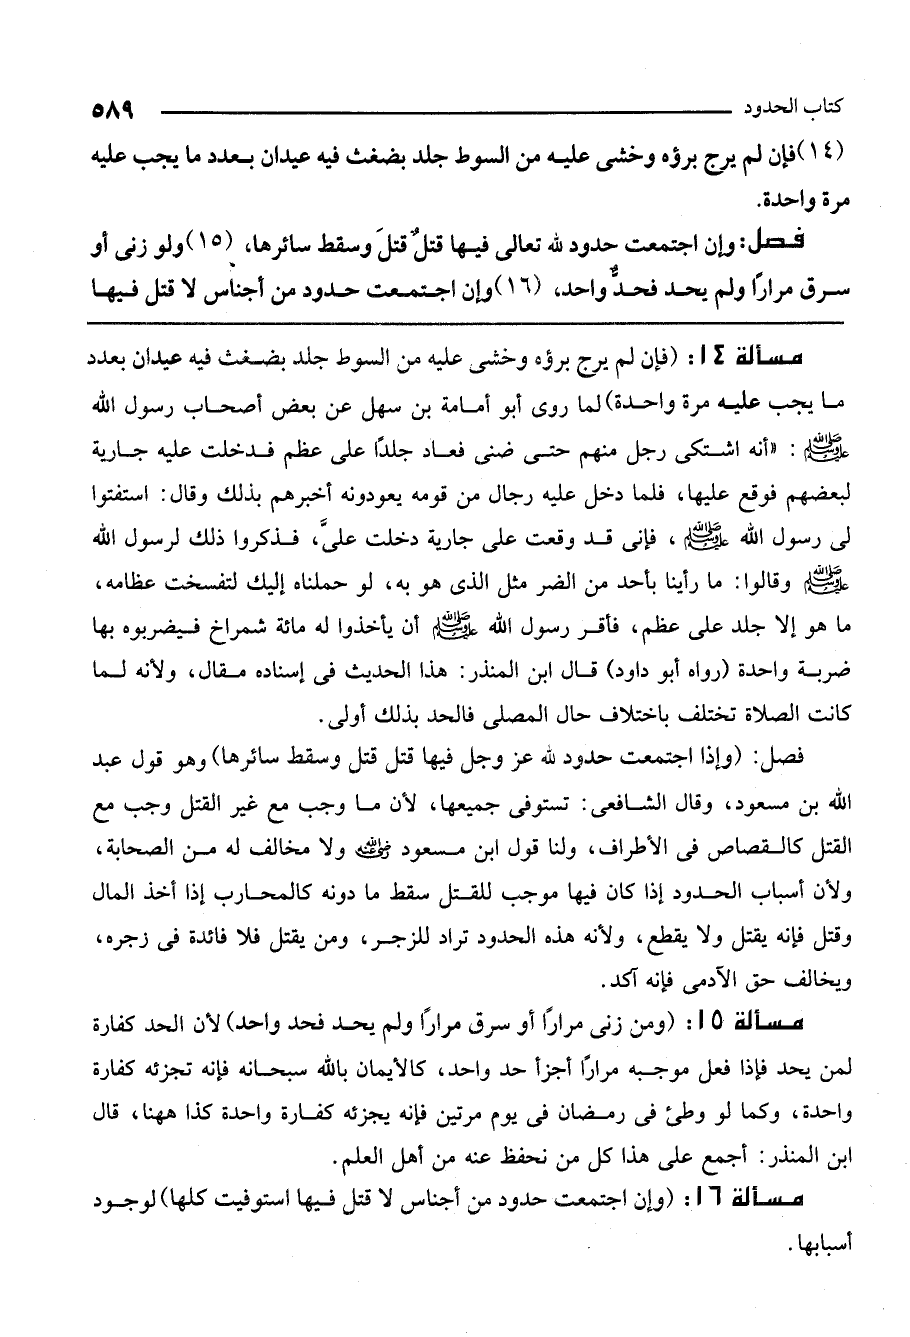 كتاب الحدود ٥٨٩
(١٤)فإن لم يرج برؤه وخشى عليه من السوط جلد بضغث فيه عيدان بعدد ما يجب عليه
مرة واحدة.
فصل: وإن اجتمعت حدود لله تعالى فيها قتلٌ قتلَ وسقط سائرها، (١٥)ولو زنى أو
سرق مرارًا ولم يحد فحدٌّ واحد، (١٦)وإن اجتمعت حدود من أجناس لا قتل فيها
مسألة ١٤: (فإن لم يرج برؤه وخشى عليه من السوط جلد بضغث فيه عيدان بعدد
ما يجب عليه مرة واحدة) لما روى أبو أمامة بن سهل عن بعض أصحاب رسول الله
ﷺ : «أنه اشتكى رجل منهم حتى ضنى فعاد جلدًا على عظم فدخلت عليه جارية
لبعضهم فوقع عليها، فلما دخل عليه رجال من قومه يعودونه أخبرهم بذلك وقال: استفتوا
لى رسول الله ﷺ ، فإنى قد وقعت على جارية دخلت علىَّ، فذكروا ذلك لرسول الله
ﷺ وقالوا: ما رأينا بأحد من الضر مثل الذى هو به، لو حملناه إليك لتفسخت عظامه،
ما هو إلا جلد على عظم، فأقر رسول الله ﷺ أن يأخذوا له مائة شمراخ فيضربوه بها
ضربة واحدة (رواه أبو داود) قال ابن المنذر: هذا الحديث فى إسناده مقال، ولأنه لما
كانت الصلاة تختلف باختلاف حال المصلى فالحد بذلك أولى.
فصل: (وإذا اجتمعت حدود لله عز وجل فيها قتل قتل وسقط سائرها) وهو قول عبد
الله بن مسعود، وقال الشافعى: تستوفى جميعها، لأن ما وجب مع غير القتل وجب مع
القتل كالقصاص فى الأطراف، ولنا قول ابن مسعود رضي الله عنه ولا مخالف له من الصحابة،
ولأن أسباب الحدود إذا كان فيها موجب للقتل سقط ما دونه كالمحارب إذا أخذ المال
وقتل فإنه يقتل ولا يقطع، ولأنه هذه الحدود تراد للزجر، ومن يقتل فلا فائدة فى زجره،
ويخالف حق الآدمى فإنه آكد.
مسألة ١٥: (ومن زنى مرارًا أو سرق مرارًا ولم يحد فحد واحد) لأن الحد كفارة
لمن يحد فإذا فعل موجبه مرارًا أجزأ حد واحد، كالأيمان بالله سبحانه فإنه تجزئه كفارة
واحدة، وكما لو وطئ فى رمضان فى يوم مرتين فإنه يجزئه كفارة واحدة كذا ههنا، قال
ابن المنذر: أجمع على هذا كل من نحفظ عنه من أهل العلم.
مسألة ١٦: (وإن اجتمعت حدود من أجناس لا قتل فيها استوفيت كلها) لوجود
أسبابها.